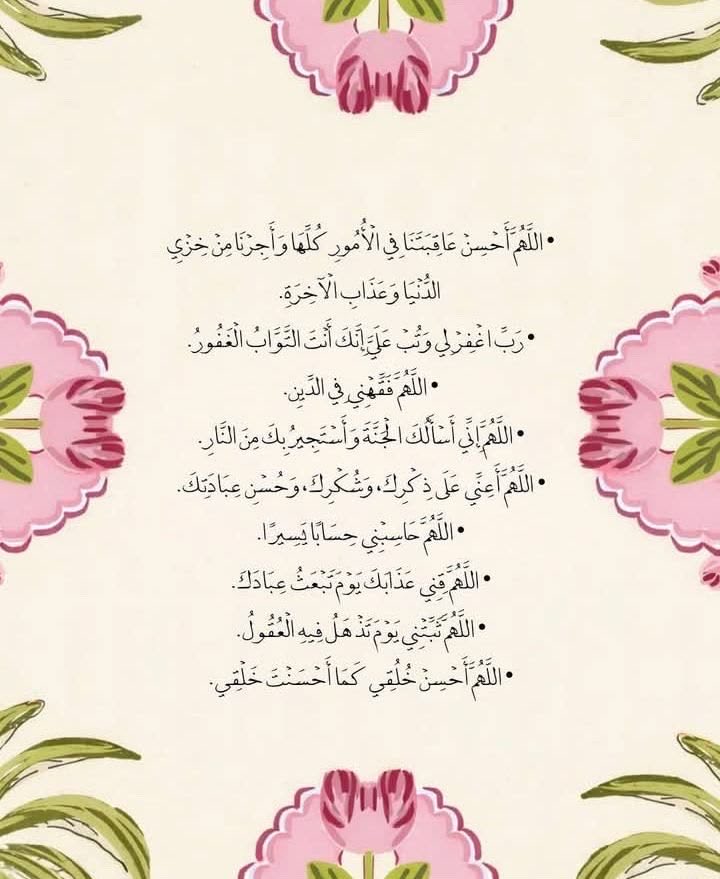 • اللَّهُمَّ أَحْسِنْ عَاقِبَتَنَا فِي الْأُمُورِ كُلِّهَا وَأَجِرْنَا مِنْ خِزْيِ
الدُّنْيَا وَعَذَابِ الْآخِرَةِ.
• رَبِّ اغْفِرْ لِي وَتُبْ عَلَيَّ إِنَّكَ أَنْتَ التَّوَّابُ الْغَفُورُ.
• اللَّهُمَّ فَقِّهْنِي فِي الدِّينِ.
• اللَّهُمَّ إِنِّي أَسْأَلُكَ الْجَنَّةَ وَأَسْتَجِيرُ بِكَ مِنَ النَّارِ.
• اللَّهُمَّ أَعِنِّي عَلَى ذِكْرِكَ، وَشُكْرِكَ، وَحُسْنِ عِبَادَتِكَ.
• اللَّهُمَّ حَاسِبْنِي حِسَابًا يَسِيرًا.
• اللَّهُمَّ قِنِي عَذَابَكَ يَوْمَ تَبْعَثُ عِبَادَكَ.
• اللَّهُمَّ ثَبِّتْنِي يَوْمَ تَذْهَلُ فِيهِ الْعُقُولُ.
• اللَّهُمَّ أَحْسِنْ خُلُقِي كَمَا أَحْسَنْتَ خَلْقِي.